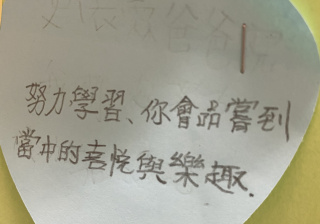 努力學習、你會品嘗到
當中的喜悅與樂趣.